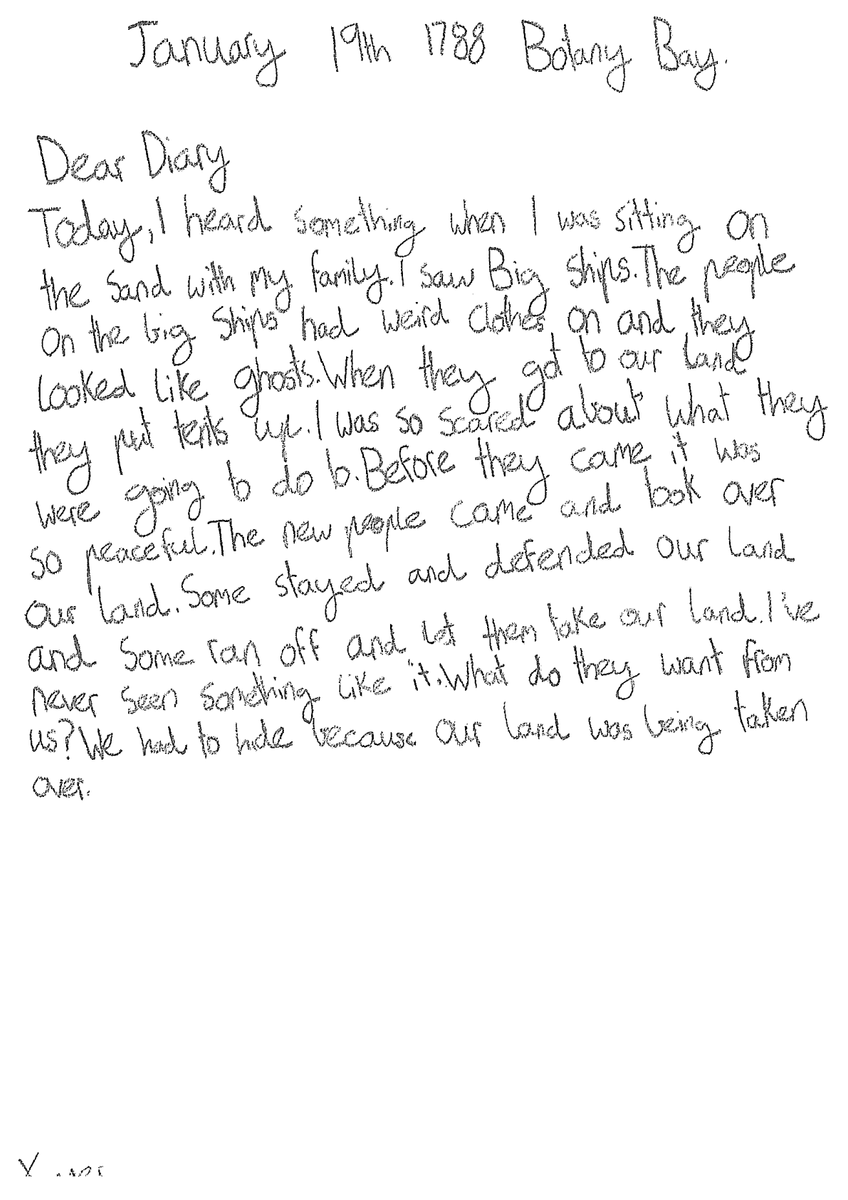 January 19th 1788 Botany Bay.
Dear Diary
Today, I heard something when I was sitting on
the sand with my family. I saw Big ships. The people
On the big ships had weird clothes on and they
looked like ghosts. When they got to our land
they put tents up. I was so scared about what they
were going to do to. Before they came it was
so peaceful. The new people came and took over
our land. Some stayed and defended our land
and some ran off and let them take our land. I've
never seen something like it. What do they want from
us? We had to hide because our land was being taken
over.